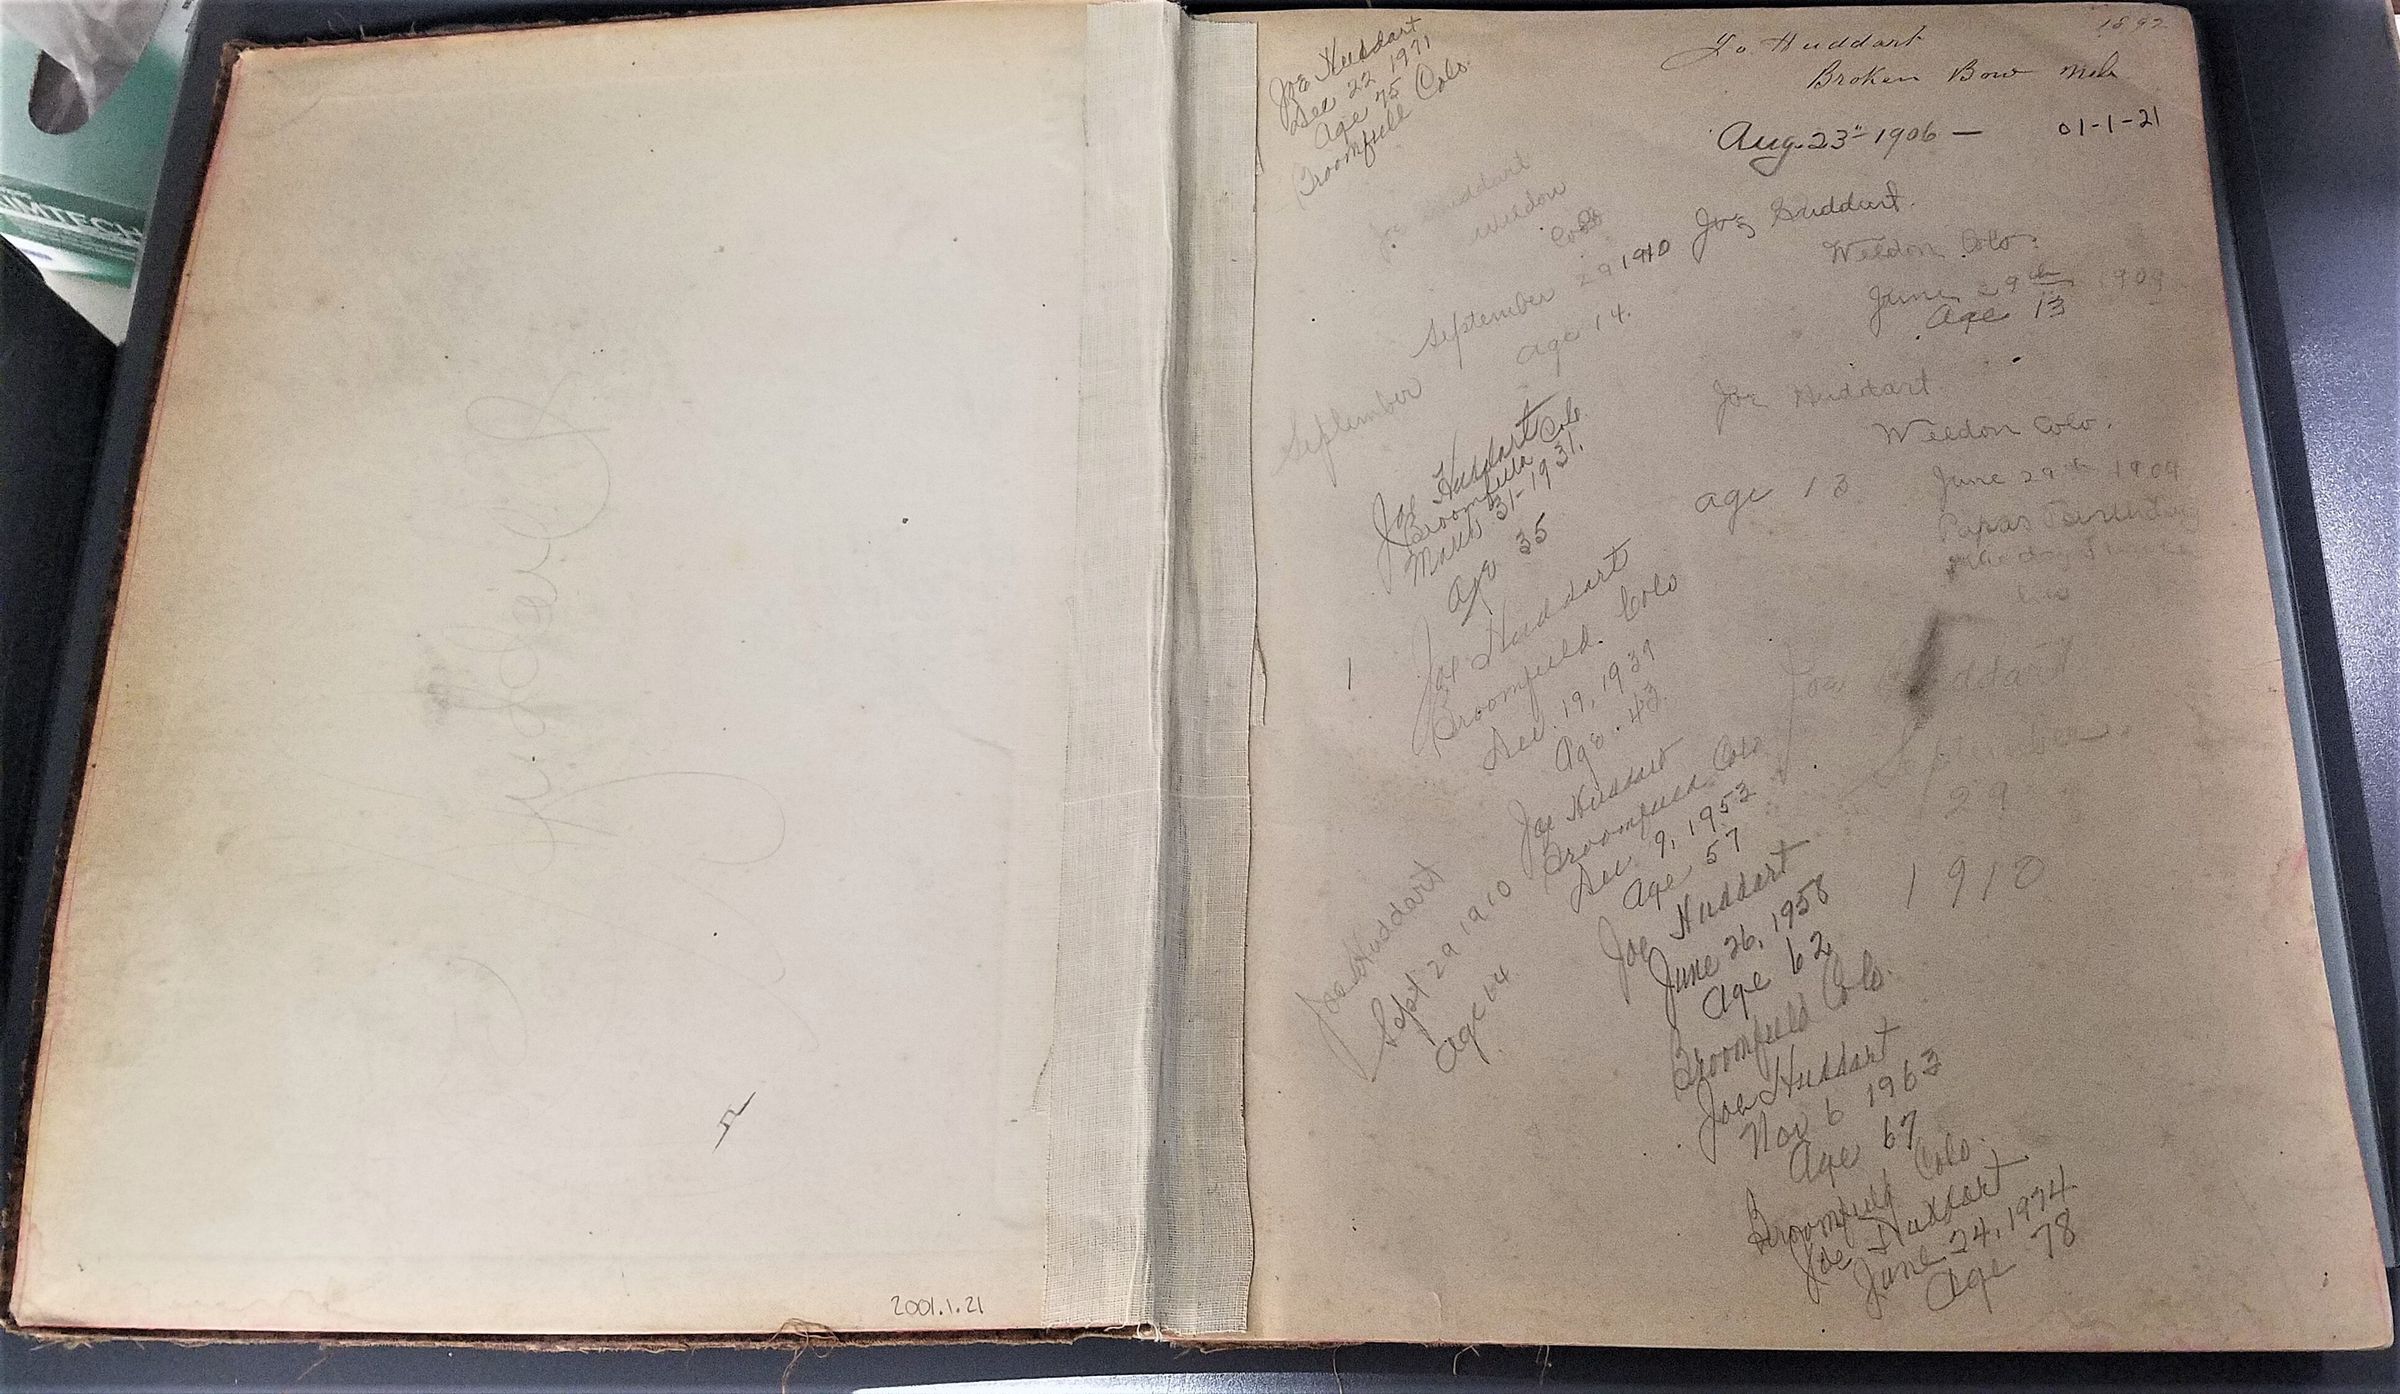 2001.1.21
1892
Jo. Huddart
Broken Bow Neb
Aug. 23" 1906 —
01-1-21
Joe Huddart
Dec 22 1971
Age 75
Broomfield Colo.
Joe Huddart
Weldon
Colo
September 29 1910
age 14.
September
Joe Huddart.
Weldon Colo.
June 29th 1909
Age 13
Joe Huddart
Weldon Colo.
June 29th 1909
age 13
Papas Birthday
Joe Huddart
Broomfield Colo.
March 31-1931.
Age 35
Joe Huddart
Broomfield. Colo
Dec. 19, 1939
Age. 43
Joe Huddart
September
29
1910
Joe Huddart
Broomfield Colo
Dec 9, 1953
Age 57
Joe Huddart
Sept 29 1910
age 14
Joe Huddart
June 26, 1958
Age 62
Broomfield Colo.
Joe Huddart
Nov 6 1963
Age 67
Broomfield Colo.
Joe Huddart
June 24, 1974
Age 78